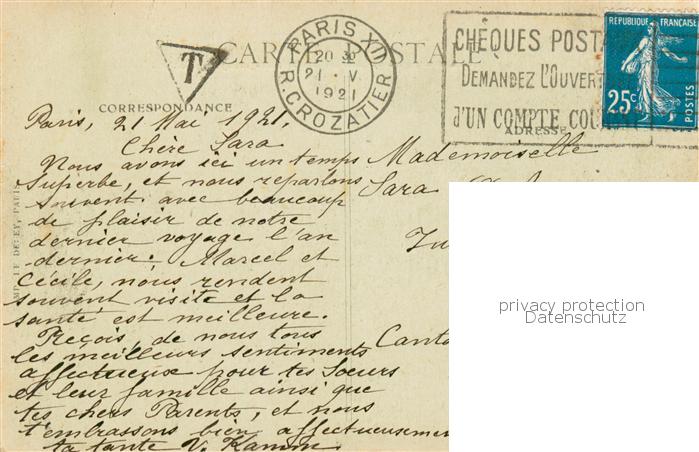 CARTE POSTALE
T
PARIS XII
20
21 · V.
1921
R. CROZATIER
CHÈQUES POSTA
DEMANDEZ L'OUVERT
D'UN COMPTE COU
RÉPUBLIQUE FRANÇAISE
25c
POSTES
CORRESPONDANCE
ADRESSE
Paris, 21 Mai 1921.
Chère Sara
Nous avons ici un temps
superbe, et nous reparlons
souvent avec beaucoup
de plaisir de notre
dernier voyage l'an
dernier. Marcel et
Cécile, nous rendent
souvent visite et la
santé est meilleure.
Reçois, de nous tous
les meilleurs sentiments
affectueux pour tes Soeurs
et leur famille ainsi que
tes chers Parents, et nous
t'embrassons bien affectueusemen
ta tante V. Kamm
Mademoiselle
Sara
Canto
privacy protection
Datenschutz